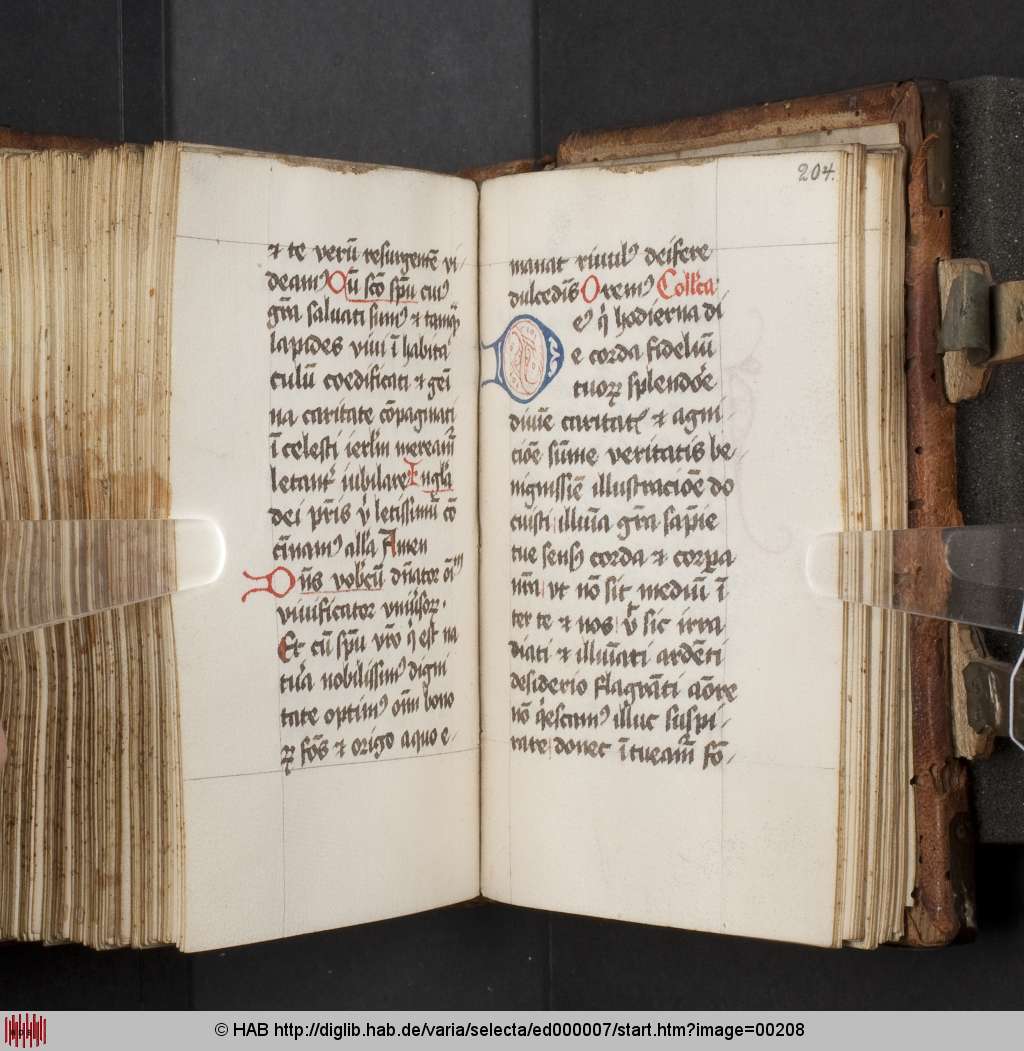 & te verū resurgentē vi-
deamꝰ Cū scō spū cuiꝰ
grā saluati sumꝰ & tamqͣ
lapides viui ī habita
culū coedificati & geī
na caritate cōpaginati
ī celesti ierlm mereamr̄
letantr̄ iubilare In gl'a
dei pr̄is letissimū cō
alla Amen
Dn̄s vobcū dn̄ator
viuificator
Et cū spū est na
tura nobilissimꝰ digni
tate optimꝰ om̄ bono
ꝝ fōs & origo a quo e-
204.
manat riuulꝰ deifere
dulcedīs Oremꝰ Coll'ca
D eꝰ q̄ hodierna di
e corda fideliū
tuoꝝ splendoē
diuīe caritatꝭ & agni-
cioē sūme veritatis be-
nignissiē illustracioē do
cuisti illuīa grā sapīe
tue sensꝰ corda & corpa
nr̄a vt nō sit mediū ī
ter te & nos sic irra
diati & illuīati ardēti
desiderio flagrāti aōre
nō q̄escamꝰ illuc suspi-
rate donec ī tueamr̄ fō-
© HAB http://diglib.hab.de/varia/selecta/ed000007/start.htm?image=00208